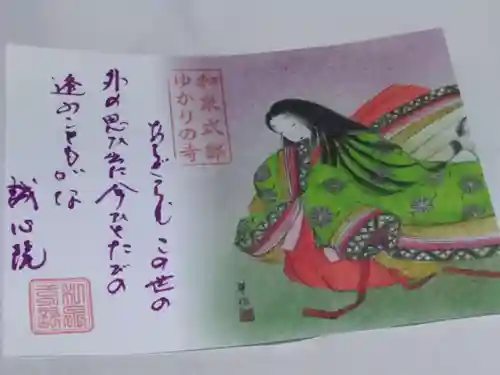 和泉式部
ゆかりの寺
あらざらむ この世の
外の思ひ出に今ひとたびの
逢ふこともがな
誠心院